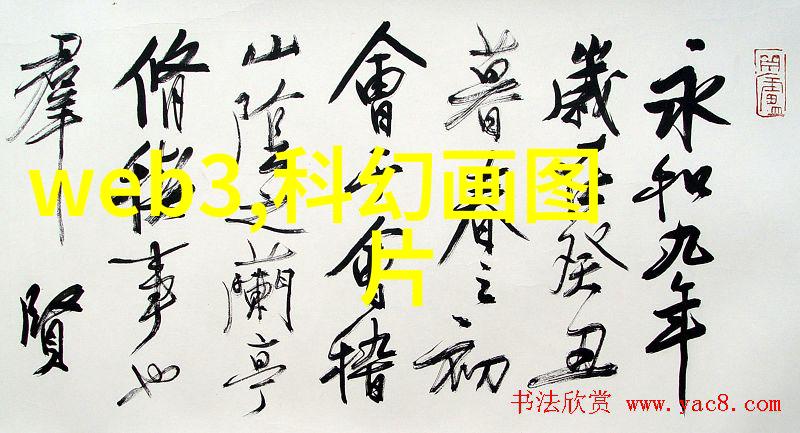 永和九年
歲在癸丑
暮春之初
會于會稽
山陰之蘭亭
脩禊事也
羣賢
web3,科幻画图
片
书法欣赏 www.yac8.com